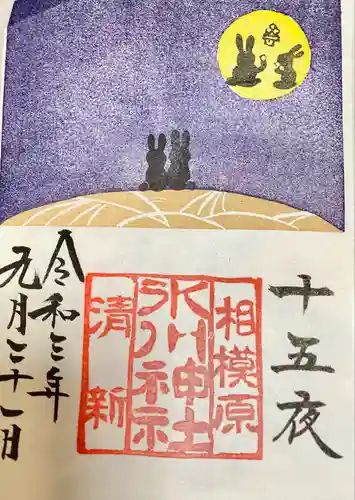 十五夜
相模原
氷川神社
清新
令和三年
九月二十一日